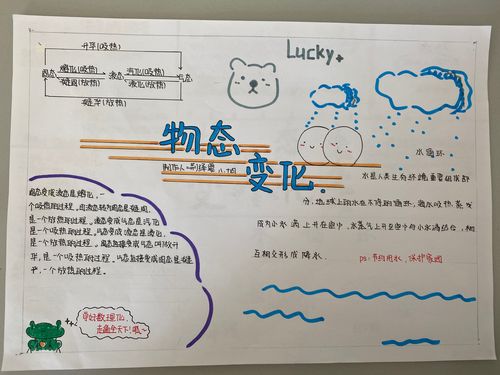 升华(吸热)
固态 熔化(吸热) 液态 汽化(吸热) 气态
凝固(放热) 液化(放热)
凝华(放热)
Lucky
物态
变化
水循环
水是人类生存环境重要组成部
分.地球上的水在不停的循环,吸热蒸发
成为小水滴上升在空中,水蒸气上升至空中与小水滴结合,相
互相交形成降水.
ps:节约用水,保护家园
固态变成液态是熔化,一
个吸热的过程.由液态转为固态是凝固,
是一个放热的过程.液态变成气态是汽化
是一个吸热的过程.气态变成液态是液化,
是一个放热的过程.固态直接变成气态叫做升
华,是一个吸热的过程.气态直接变成固态是凝
华,一个放热的过程.
学好数理化,
走遍全天下!哦~